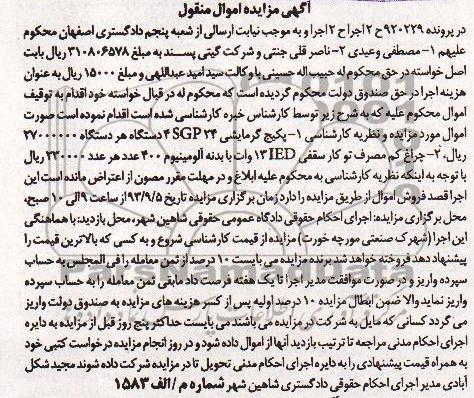 آگهی مزایده اموال منقول
در پرونده ۹۲۰۲۲۹ ح ۲ اجرا ح ۲ اجرا و به موجب نیابت ارسالی از شعبه پنجم دادگستری اصفهان محکوم
علیهم ۱- مصطفی وعیدی ۲- ناصر قلی جنتی و شرکت گیتی پسند به مبلغ ۳۱۰۸۰۶۵۷۸ ریال بابت
اصل خواسته در حق محکوم له حبیب اله حسینی با وکالت سید امید عبداللهی و مبلغ ۱۵۰۰۰ ریال به عنوان
هزینه اجرا در حق صندوق دولت محکوم گردیده است که محکوم له در قبال خواسته خود اقدام به توقیف
اموال محکوم علیه که به شرح زیر توسط کارشناس خبره کارشناسی شده است اقدام نموده است صورت
اموال مورد مزایده و نظریه کارشناسی ۱- پکیج گرمایشی SGP ۲۴ ۴ دستگاه هر دستگاه ۲۷۰۰۰۰۰۰
ریال. ۲- چراغ کم مصرف تو کار سقفی IED ۱۳ وات با بدنه آلومینیوم ۴۰۰ عدد هر عدد ۲۳۰۰۰۰ ریال
با توجه به اینکه نظریه کارشناسی به محکوم علیه ابلاغ و در مهلت مقرر مصون از اعتراض مانده است این
اجرا قصد فروش اموال از طریق مزایده را دارد زمان برگزاری مزایده تاریخ ۹۳/۹/۵ از ساعت ۹ الی ۱۰ صبح،
محل برگزاری مزایده: اجرای احکام حقوقی دادگاه عمومی حقوقی شاهین شهر، محل بازدید: با هماهنگی
این اجرا (شهرک صنعتی مورچه خورت) مزایده از قیمت کارشناسی شروع و به کسی که بالاترین قیمت را
پیشنهاد دهد فروخته خواهد شد برنده مزایده می بایست ۱۰ درصد از ثمن معامله را فی المجلس به حساب
سپرده واریز و در صورت موافقت مدیر اجرا تا یک هفته فرصت داد مابقی ثمن معامله را به حساب سپرده
واریز نماید والا ضمن ابطال مزایده ۱۰ درصد اولیه پس از کسر هزینه های مزایده به صندوق دولت واریز
می گردد کسانی که مایل به شرکت در مزایده می باشند می بایست حداکثر پنج روز قبل از مزایده به دایره
اجرای احکام مدنی مراجعه تا ترتیب بازدید آنها از اموال داده شود و در روز انجام مزایده درخواست کتبی خود
به همراه قیمت پیشنهادی را به دایره اجرای احکام مدنی تحویل تا در مزایده شرکت داده شوند مجید شکل
آبادی مدیر اجرای احکام حقوقی دادگستری شاهین شهر شماره م/الف ۱۵۸۳
ParsNamadData